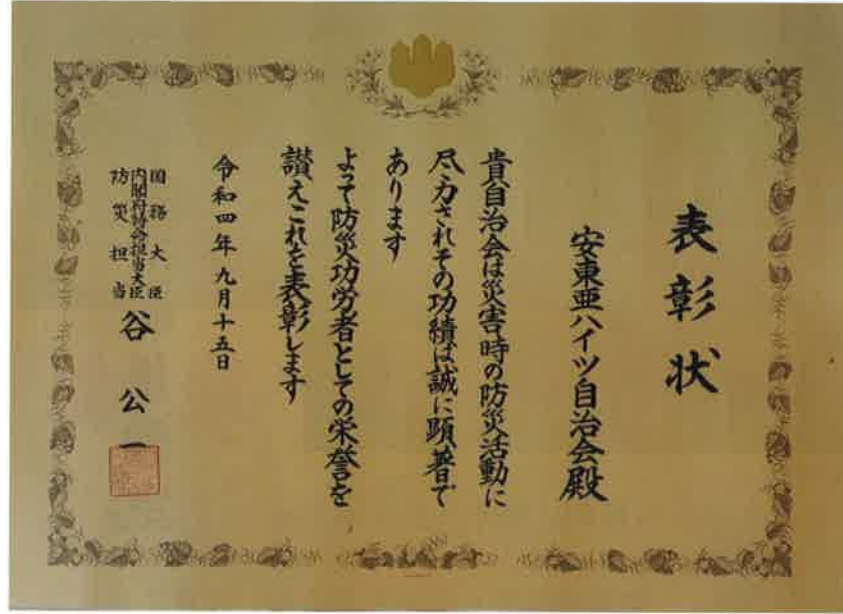 表彰状
安東亜ハイツ自治会殿
貴自治会は災害時の防災活動に
尽力されその功績は誠に顕著で
あります
よって防災功労者としての栄誉を
讃えこれを表彰します
令和四年九月十五日
国務大臣
内閣府特命担当大臣
防災担当
谷公一